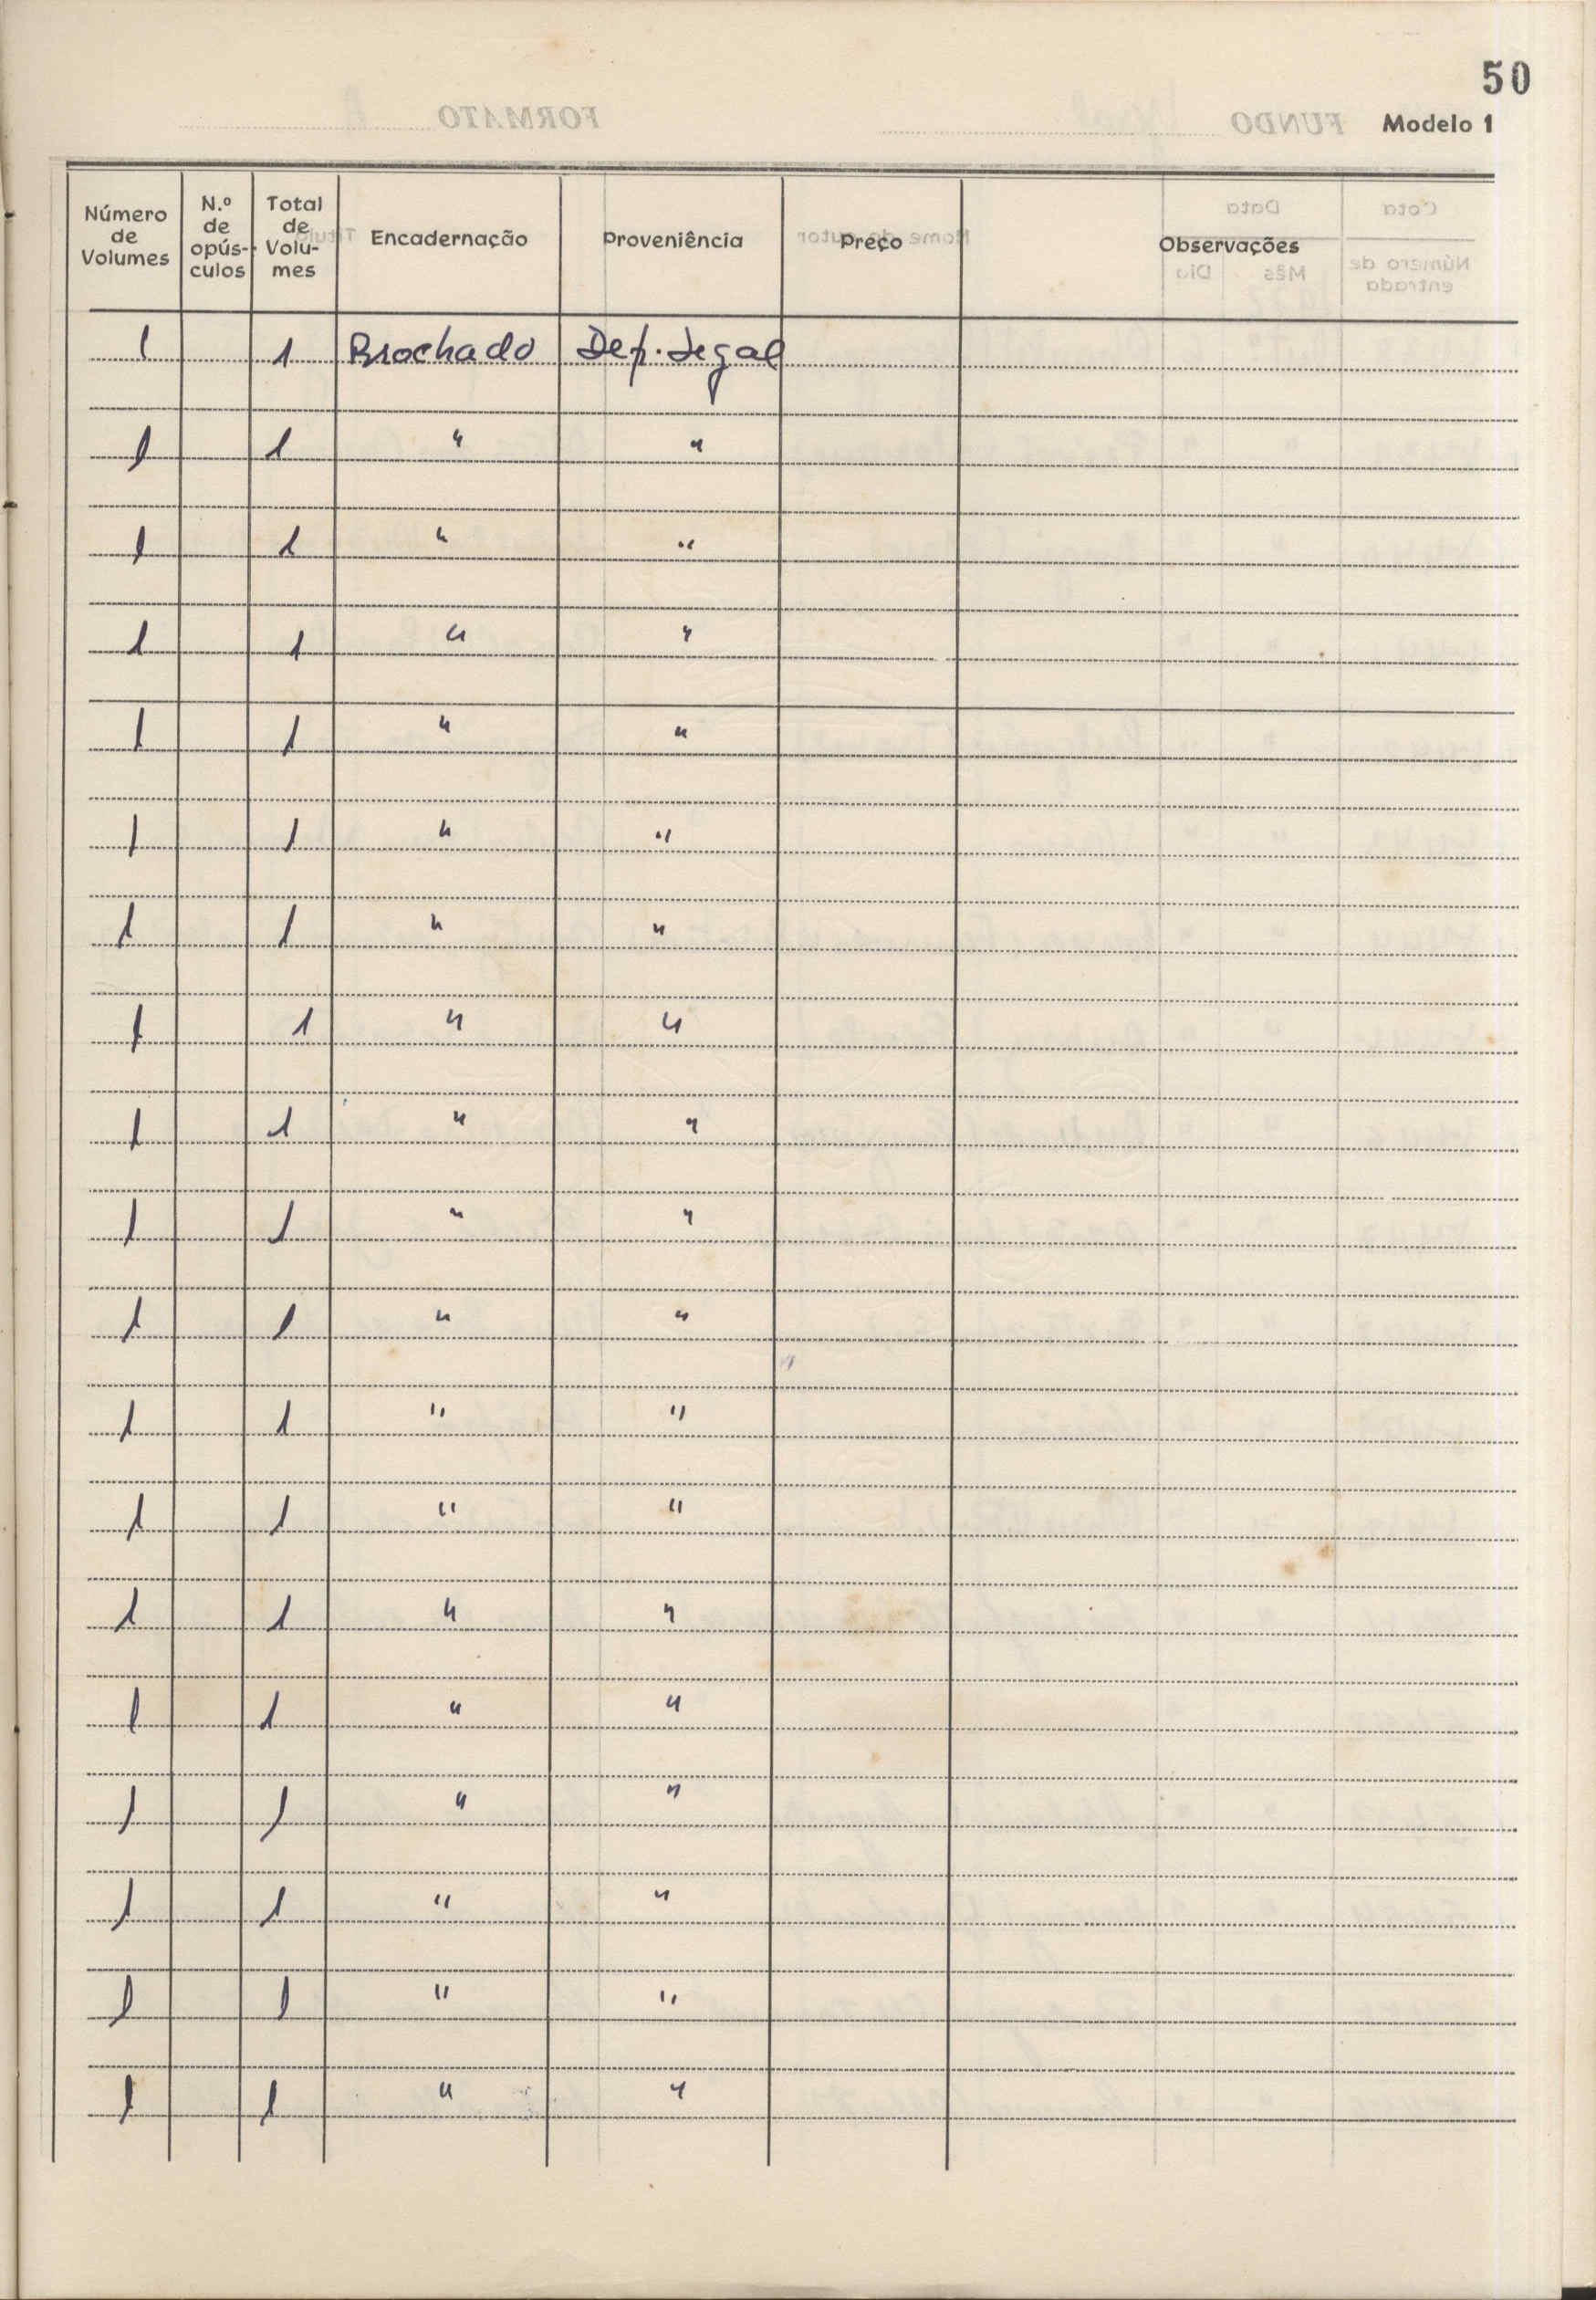 50
Modelo 1
Número de Volumes | N.º de opús-culos | Total de Volu-mes | Encadernação | Proveniência | Preço | Observações
1 | | 1 | Brochado | Dep. Legal
1 | | 1 | " | "
1 | | 1 | " | "
1 | | 1 | " | "
1 | | 1 | " | "
1 | | 1 | " | "
1 | | 1 | " | "
1 | | 1 | " | "
1 | | 1 | " | "
1 | | 1 | " | "
1 | | 1 | " | "
1 | | 1 | " | "
1 | | 1 | " | "
1 | | 1 | " | "
1 | | 1 | " | "
1 | | 1 | " | "
1 | | 1 | " | "
1 | | 1 | " | "
1 | | 1 | " | "